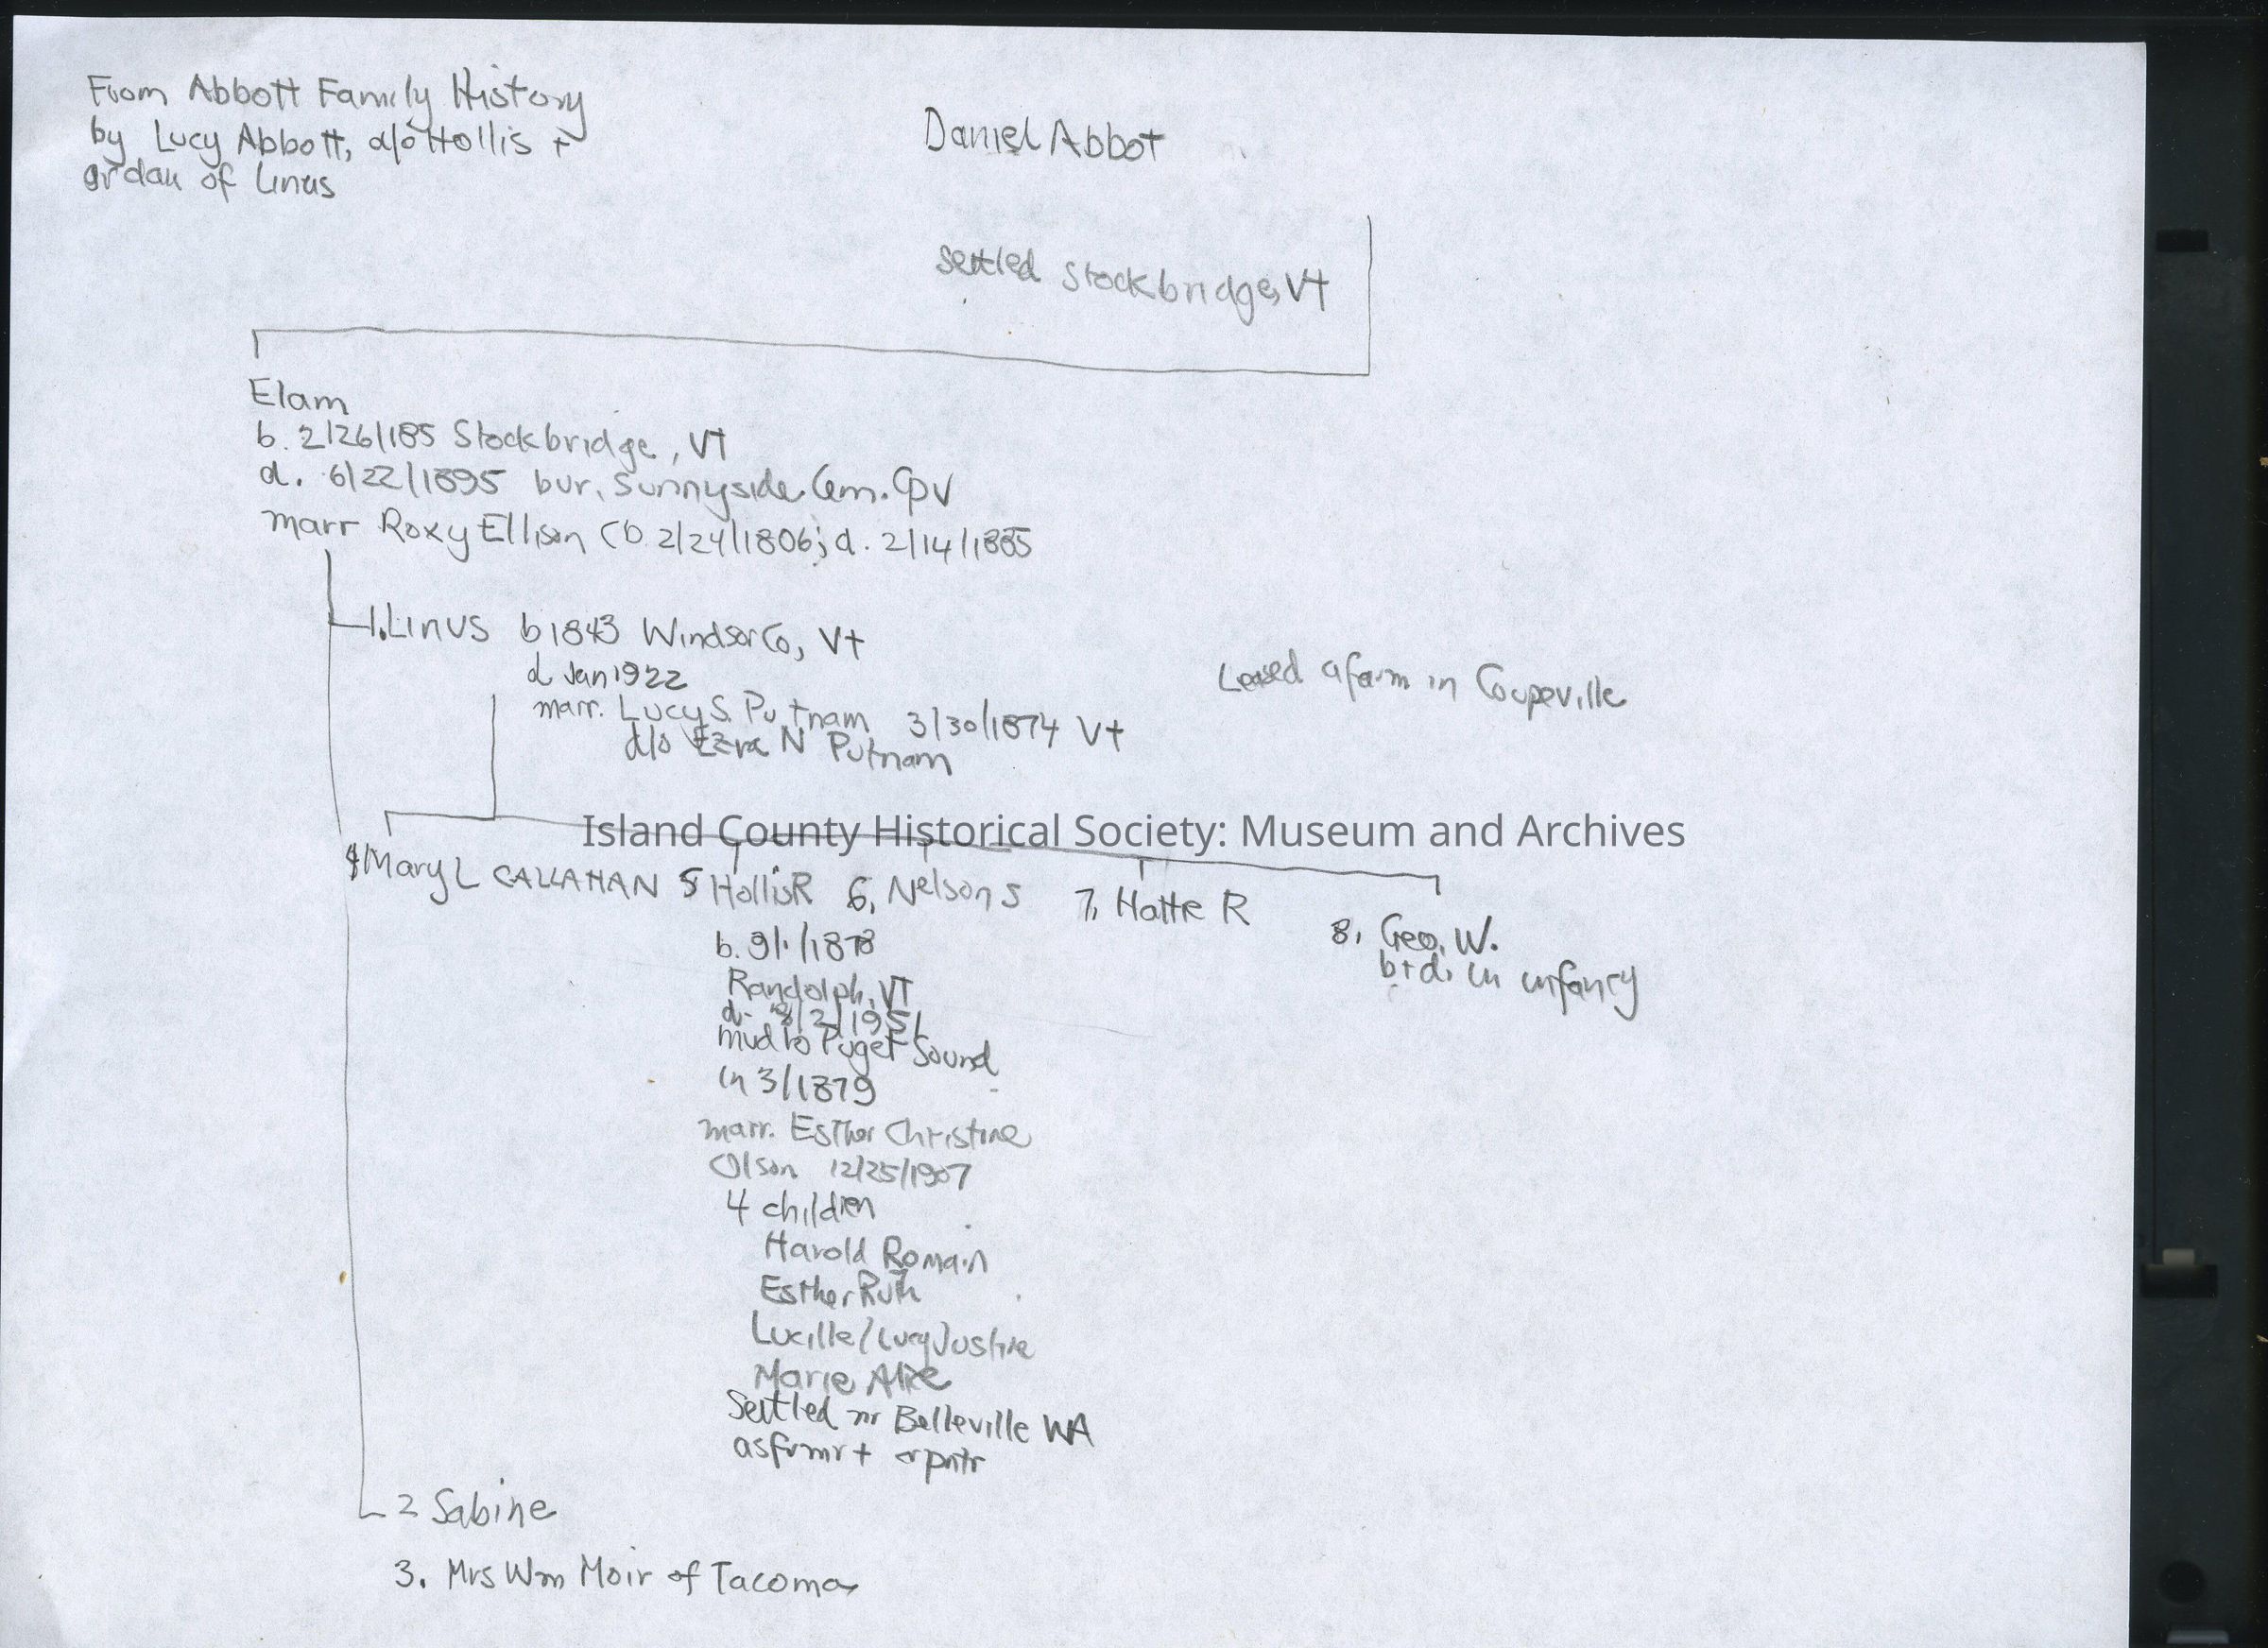 From Abbott Family History
by Lucy Abbott, d/o Hollis +
gr dau of Linus
Daniel Abbot
Settled Stockbridge, Vt
Elam
b. 2/26/185 Stockbridge, VT
d. 6/22/1895 bur. Sunnyside Cem. Cpv
marr Roxy Ellison (b 2/24/1806; d. 2/14/1885
1. Linus b 1843 Windsor Co, Vt
d Jan 1922
Leased a farm in Coupeville
marr. Lucy S. Putnam 3/30/1874 Vt
d/o Ezra N Putnam
Island County Historical Society: Museum and Archives
4 Mary L CALLAHAN 5 Hollis R 6. Nelson S 7. Hattie R
8. Geo. W.
b+d. in infancy
b. 9/1/1878
Randolph, VT
d. /2/1951
mvd to Puget Sound
in 3/1879
marr. Esther Christine
Olson 12/25/1907
4 children
Harold Romain
Esther Ruth
Lucille/Lucy Justine
Marie Alice
Settled nr Belleville WA
as frmr + crpntr
2 Sabine
3. Mrs Wm Moir of Tacoma